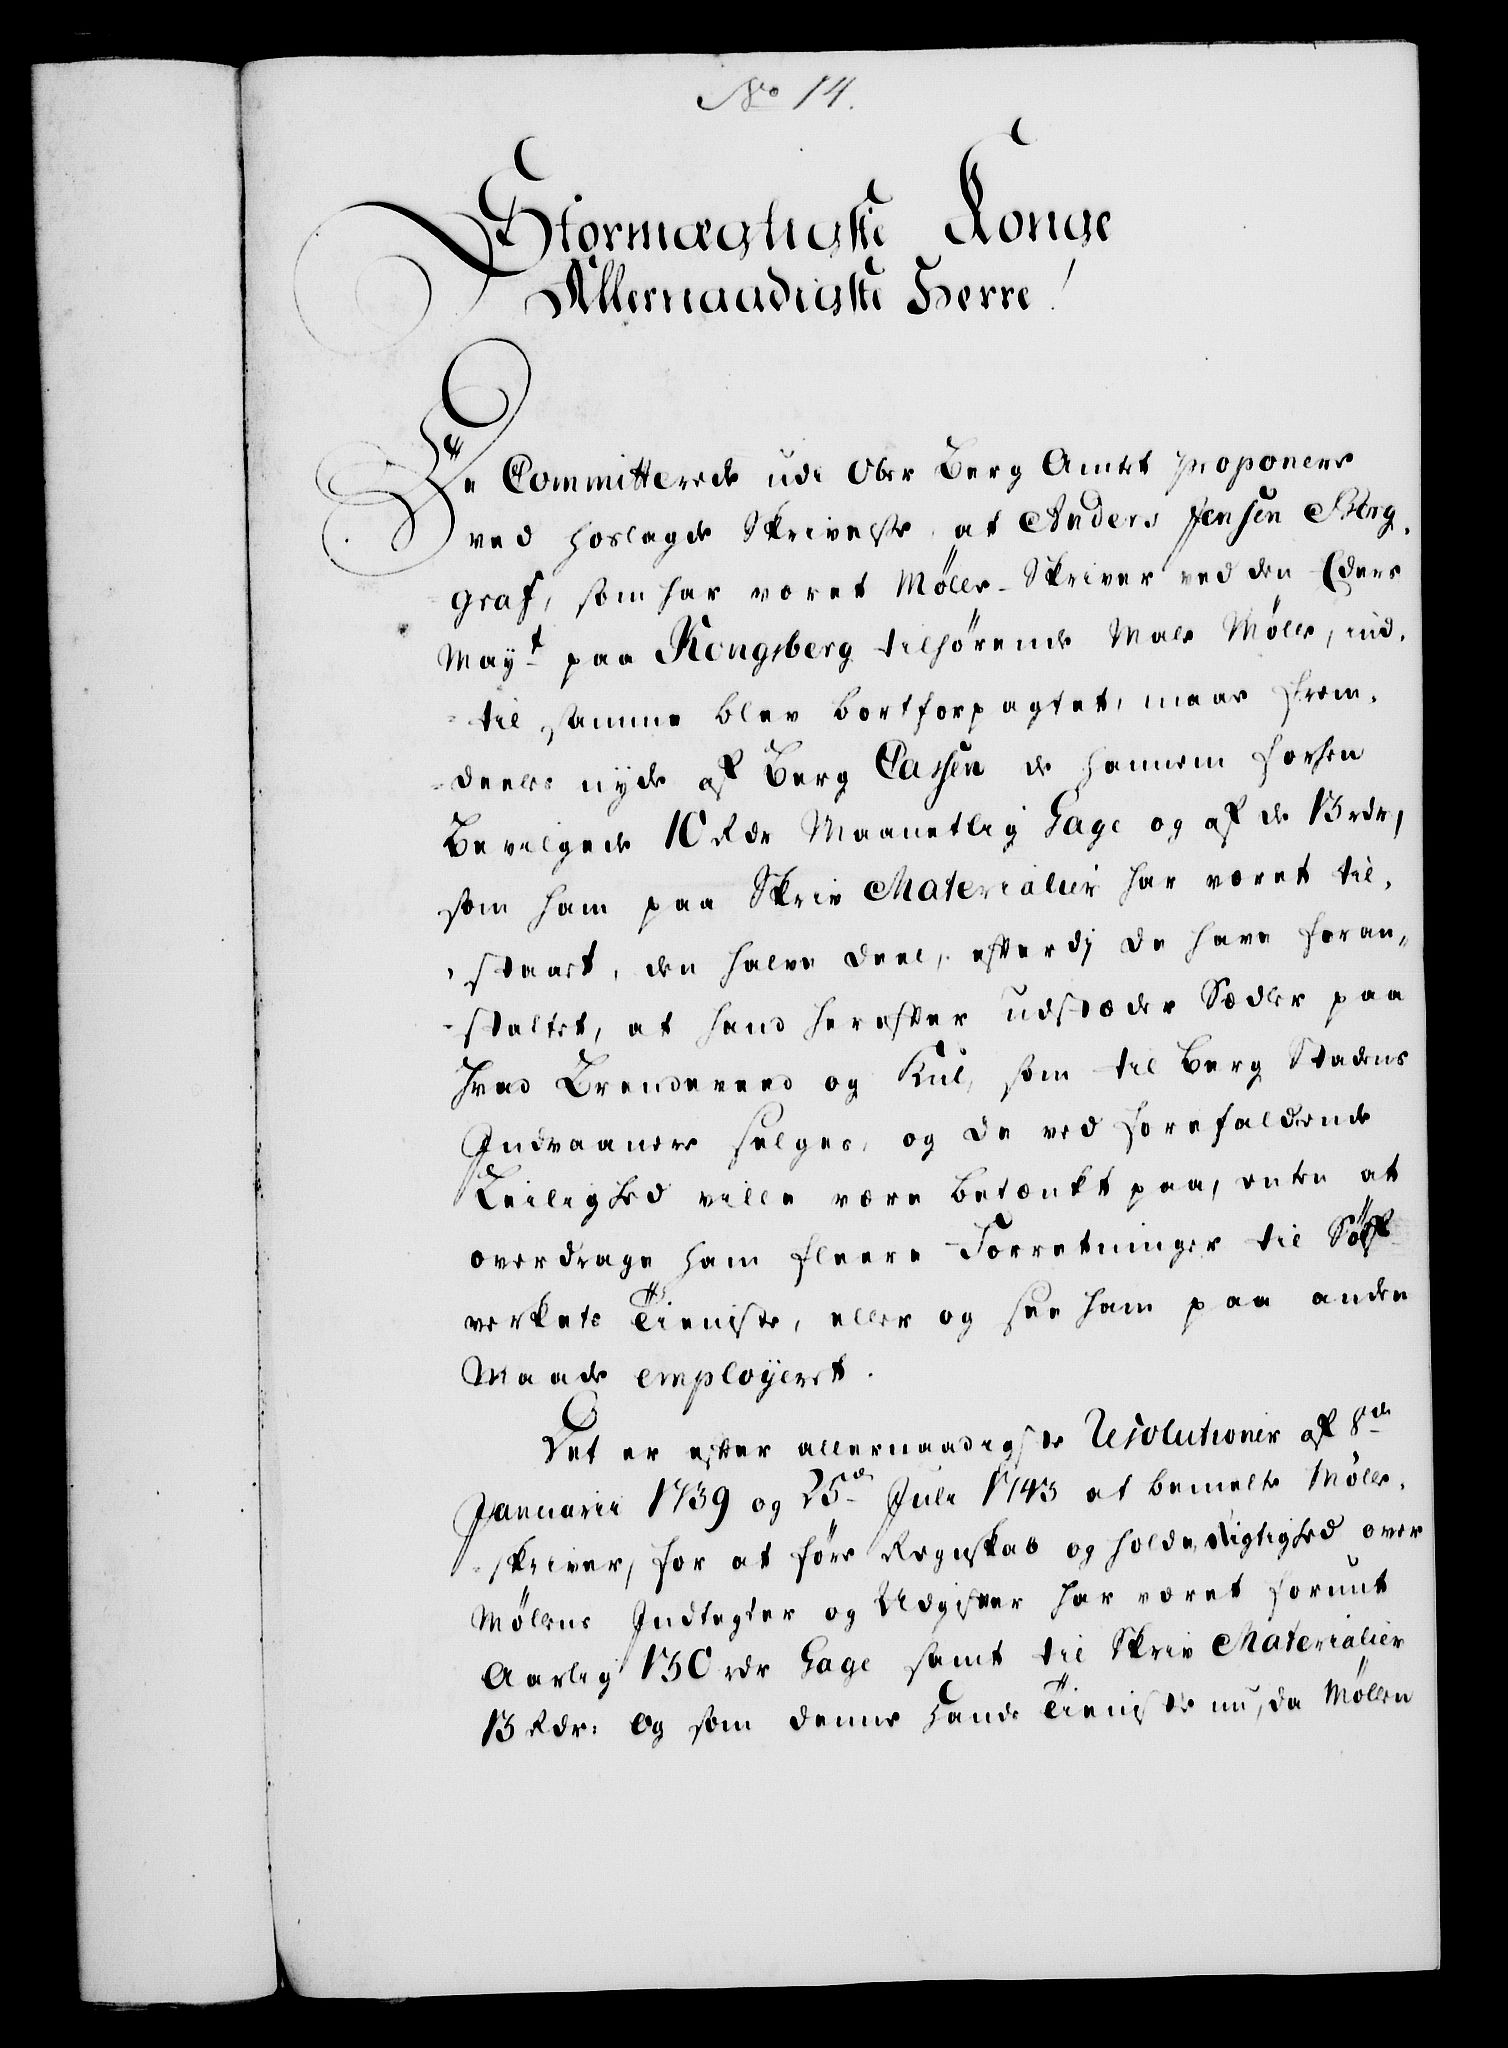 No 14.
Stormægtigste Konge
Allernaadigste Herre!
De Committerede udi Ober Berg Amtet proponere
ved hoslagde Skrivelse, at Anders Jensen Berg-
graf, som har været Mølle-Skriver ved den Eders
Mayt paa Kongsberg tilhørende Male Mølle, ind-
til samme blev bortforpagtet, maae frem-
deeles nyde af Berg Cassen de hannem forhen
Bevilgede 10 Rdr Maanetlig Gage og af de 13 rdr,
som ham paa Skriv Materialier har været til-
staaet, den halve Deel, efterdj de have foran-
staltet, at hand herefter udstæder Sædler paa
hvad Brendeveed og Kul, som til Berg Stadens
Indvaanere selges, og de ved forefaldende
Leilighed ville være betænkt paa, enten at
overdrage ham fleere Forretninger til Sølf-
verkets Tieniste, eller og see ham paa anden
Maade employeret.
Det er efter allernaadigste Resolutioner af 8de
Januarii 1739 og 25de Juli 1743 at bemelte Mølle-
skriver, for at føre Regnskab og holde Rigtighed over
Møllens Indtegter og Udgifter har været forunt
Aarlig 130 rdr Gage samt til Skriv Materialier
13 Rdr: Og som denne Hands Tieniste nu, da Møllen